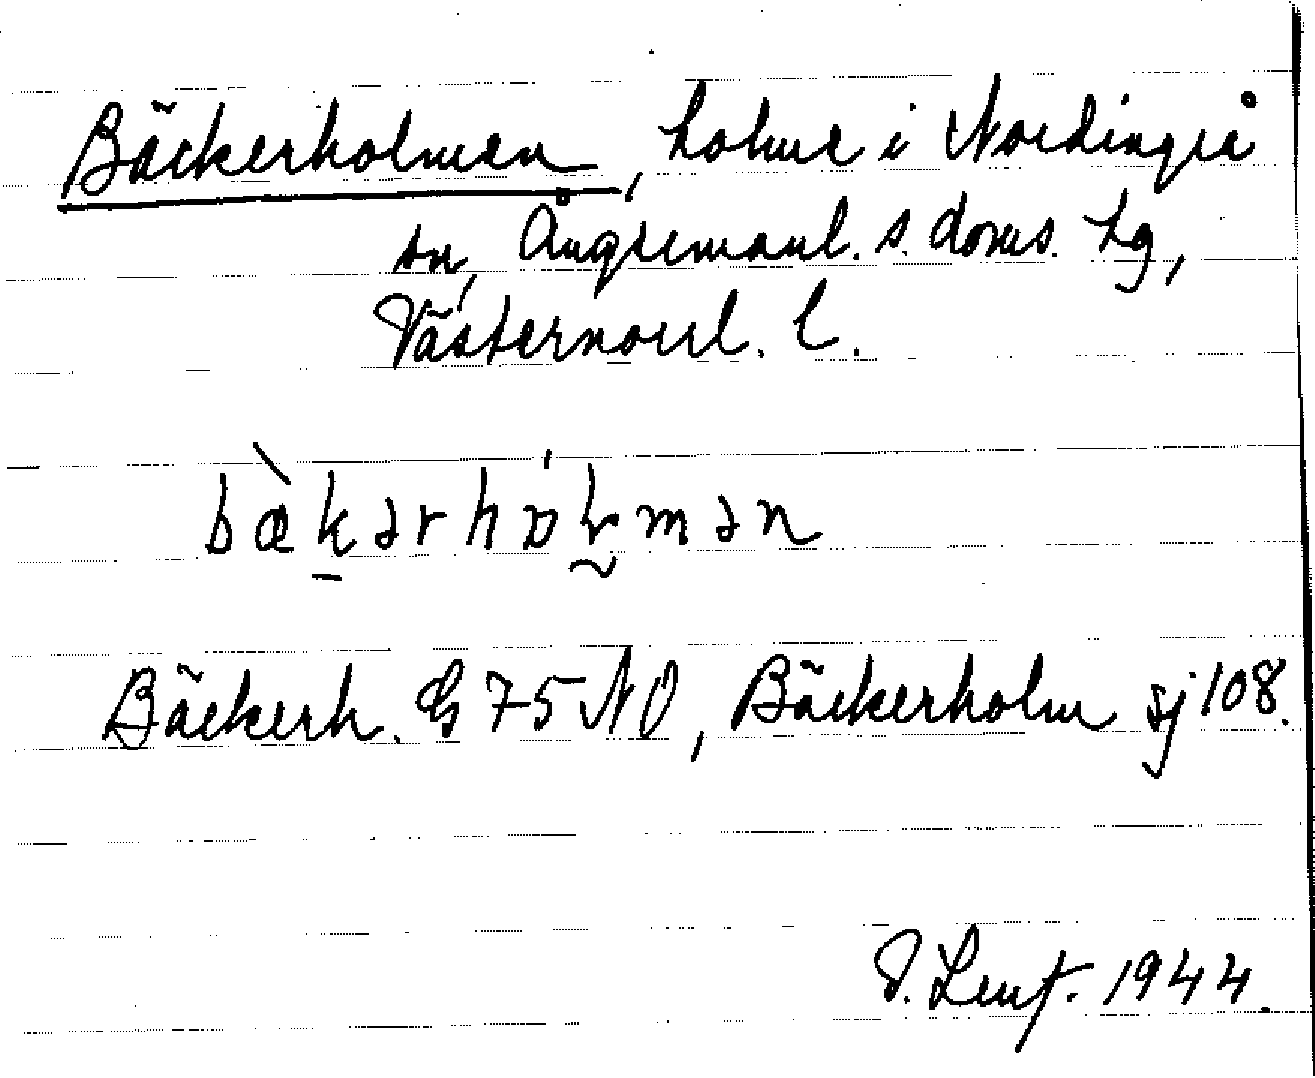 Bäckerholmen, holme i Nordingrå
sn, Ångermanl. s. doms. hg,
Västernorrl. l.
bæ̀k̠ərhɒ́l̰mən
Bäckerh. G 75 NO, Bäckerholm sj 108.
1944.